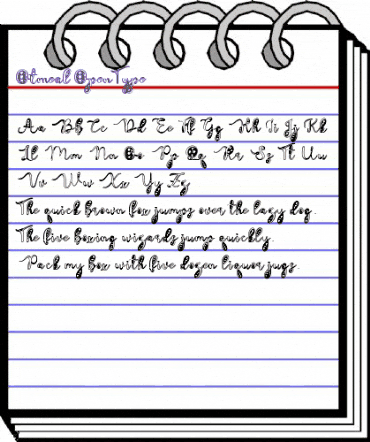 Otmeal OpenType
Aa Bb Cc Dd Ee Ff Gg Hh Ii Jj Kk
Ll Mm Nn Oo Pp Qq Rr Ss Tt Uu
Vv Ww Xx Yy Zz
The quick brown fox jumps over the lazy dog.
The five boxing wizards jump quickly.
Pack my box with five dozen liquor jugs.